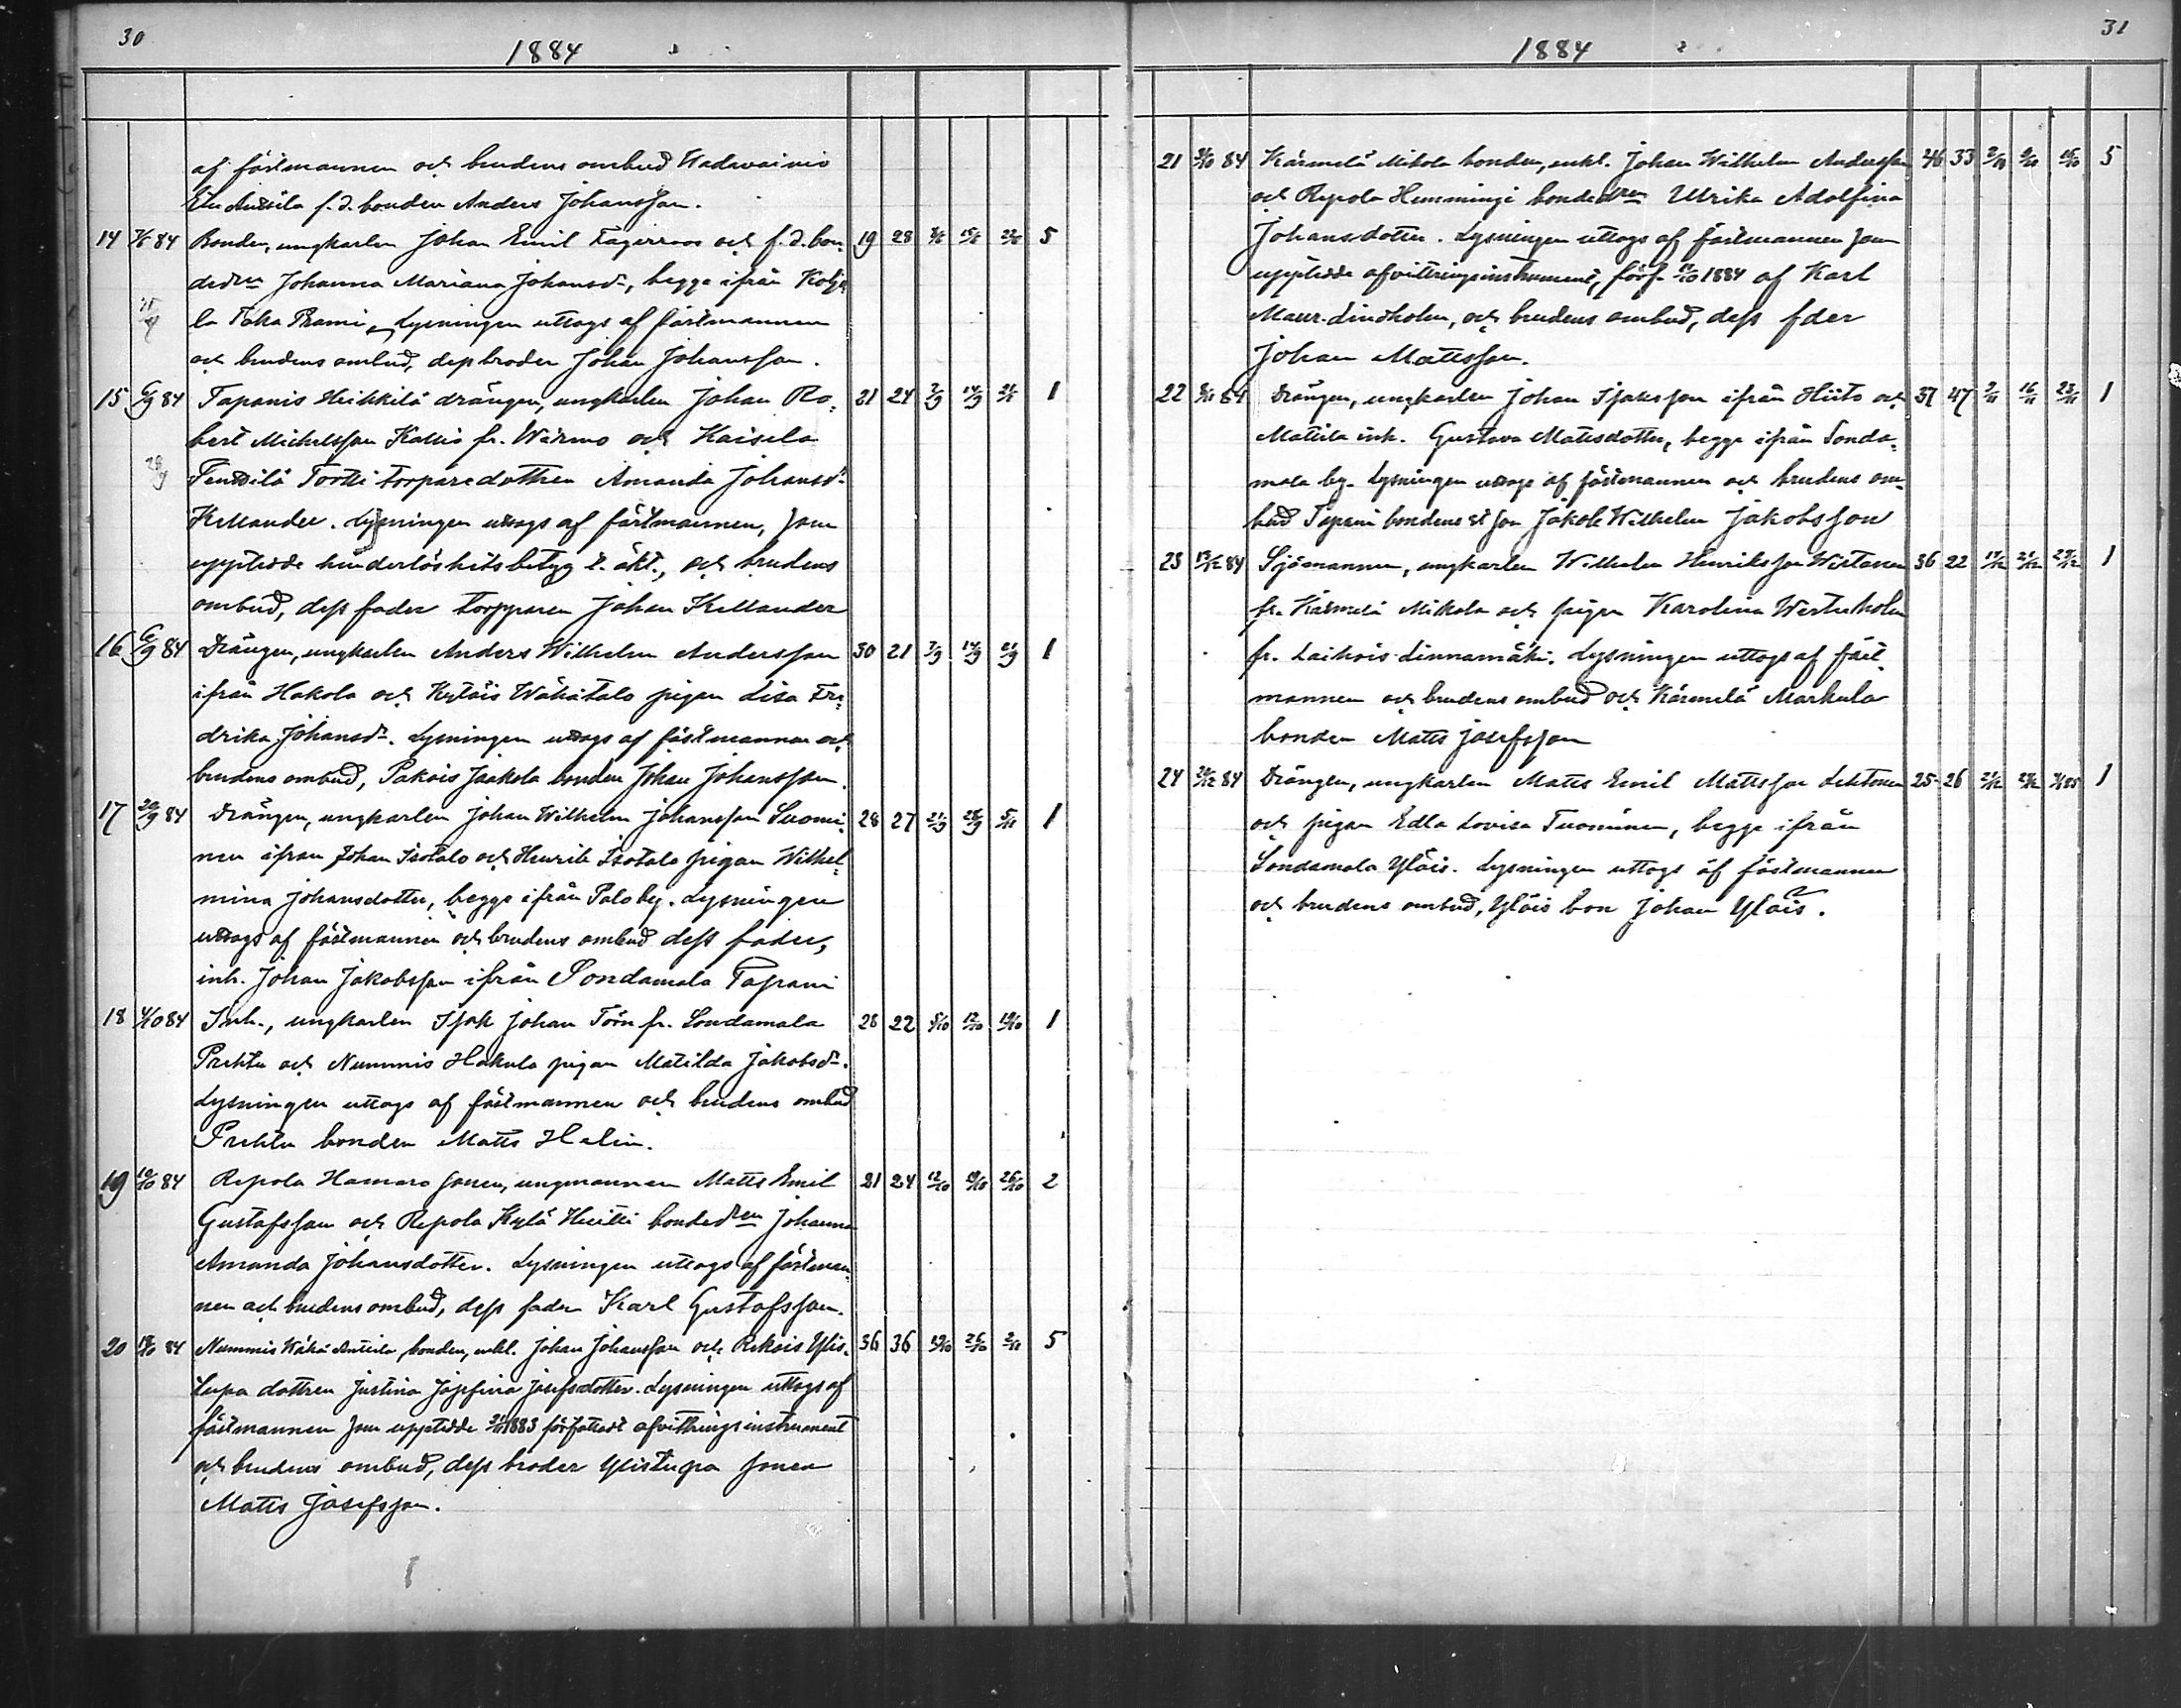 30
1884
af fästmannen och brudens ombud Wadavainio
Anders Johansson.
14 84 Bonden, ungkarlen Johan Emil Fagerroos och f. d. bon 19 28 5
dedrn Johanna Mariana Johansdr, begge ifrån Kolje
la Toka Prami, Lysningen uttogs af fästmannen
och brudens ombud, dess broder Johan Johansson.
15 6/9 84 Tapanis Heikkilä drängen, ungkarlen Johan Ro= 21 24 7/9 14/9 1
bert Michelsson Kallio fr. Wärmo och Kaisela
Torpparedottren Amanda Johansdr
Kellander. Lysningen uttogs af fästmannen, som
uppteedde hinderlöshetsbetyg t. äkt., och brudens
ombud, dess fader torpparen Johan Kellander
16 6/9 84 Drängen, ungkarlen Anders Wilhelm Andersson 30 21 7/9 14/9 21/9 1
ifrån Hakola och Kyläis Wähätalo pigan Lisa Fre=
drika Johansdr. Lysningen uttogs af fästmannen och
brudens ombud, Pakois Jaakola bonden Johan Johansson.
17 20/9 84 Drängen, ungkarlen Johan Wilhelm Johansson Suomi= 28 27 21/9 28/9 1
nen ifrån Johan Isotalo och Henrik Isotalo pigan Wilhel=
mina Johansdotter, begge ifrån Palo by. Lysningen
uttogs af fästmannen och brudens ombud dess fader,
inh. Johan Jakobsson ifrån Sondamala Tapani
18 4/10 84 Inh., ungkarlen Isak Johan Törn fr. Sondamala 28 22 5/10 12/10 19/10 1
Prehtu och Nummis Hakula pigan Matilda Jakobsdr.
Lysningen uttogs af fästmannen och brudens ombud
Prehtu bonden Matts Helin.
19 84 Repola Hamaro sonen, ungmannen Matts Emil 21 24 12/10 19/10 26/10 2
Gustafsson och Repola Kylä Huitti bondedren Johanna
Amanda Johansdotter. Lysningen uttogs af fästman
nen och brudens ombud, dess fader Karl Gustafsson.
20 18/10 84 Nummis Wähä Anttila bonden, enkl. Johan Johansson och Rekois Ylis= 36 36 19/10 26/10 2/11 5
tupa dottren Justina Josefina Josefsdotter. Lysningen uttogs af
fästmannen som uppteedde 1883 författadt afvittringsinstrument
och brudens ombud, dess broder Ylistupa sonen
Matts Josefsson.
31
1884
21 84 Kärmelä Mikola bonden, enkl. Johan Wilhelm Andersson 46 33 5
och Repola Hemmingi bondedren Ulrika Adolfina
Johansdotter. Lysningen uttogs af fästmannen som
uppteedde afvittringsinstrument, förf. 1884 af Karl
Maur. Lindholm, och brudens ombud, dess fder
Johan Mattsson.
22 84 Drängen, ungkarlen Johan Isaksson ifrån Hiito och 37 47 2/11 16/11 23/11 1
Mattila inh. Gustava Mattsdotter, begge ifrån Sonda=
mala by. Lysningen uttogs af fästmannen och brudens om=
bud Tapani bondens st son Jakob Wilhelm Jakobsson
23 13/12 84 Sjömannen, ungkarlen Wilhelm Henriksson Wirtanen 36 22 14/12 21/12 1
fr. Kärmelä Mikola och pigan Karolina Westerholm
fr. Laihois Linnamäki. Lysningen uttogs af fäst
mannen och brudens ombud och Kärmelä Markula
bonden Matts Josefsson
24 20/12 84 Drängen, ungkarlen Matts Emil Mattsson Lehtonen 25 26 21/12 1
och pigan Edla Lovisa Tuominen, begge ifrån
Sondamala Yläis. Lysningen uttogs af fästmannen
och brudens ombud, Yläis bon Johan Yläis.